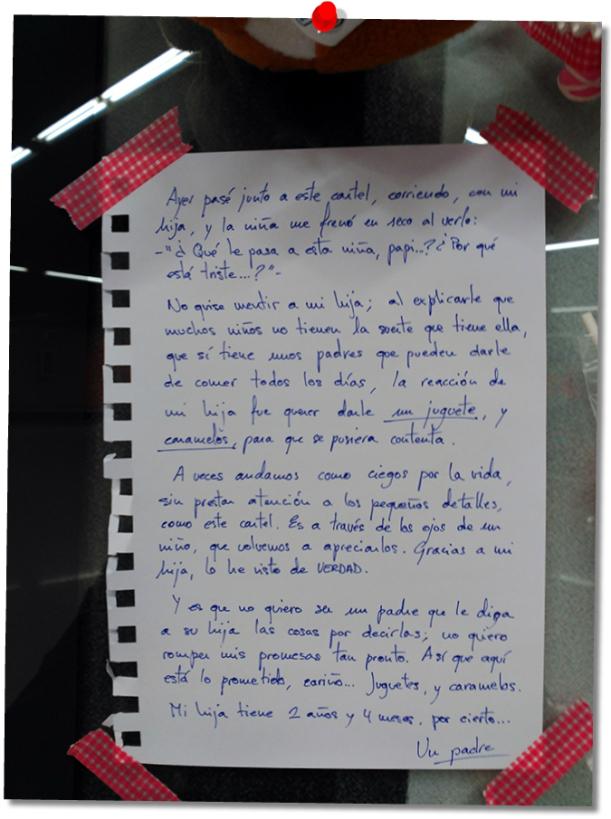 Ayer pasé junto a este cartel, corriendo, con mi
hija, y la niña me frenó en seco al verlo:
-"¿Qué le pasa a esta niña, papi...? ¿Por qué
está triste...?"-
No quise mentir a mi hija; al explicarle que
muchos niños no tienen la suerte que tiene ella,
que sí tiene unos padres que pueden darle
de comer todos los días, la reacción de
mi hija fue querer darle un juguete, y
caramelos, para que se pusiera contenta.
A veces andamos como ciegos por la vida,
sin prestar atención a los pequeños detalles,
como este cartel. Es a través de los ojos de un
niño, que volvemos a apreciarlos. Gracias a mi
hija, lo he visto de VERDAD.
Y es que no quiero ser un padre que le diga
a su hija las cosas por decirlas; no quiero
romper mis promesas tan pronto. Así que aquí
está lo prometido, cariño... Juguetes, y caramelos.
Mi hija tiene 2 años y 4 meses, por cierto...
Un padre